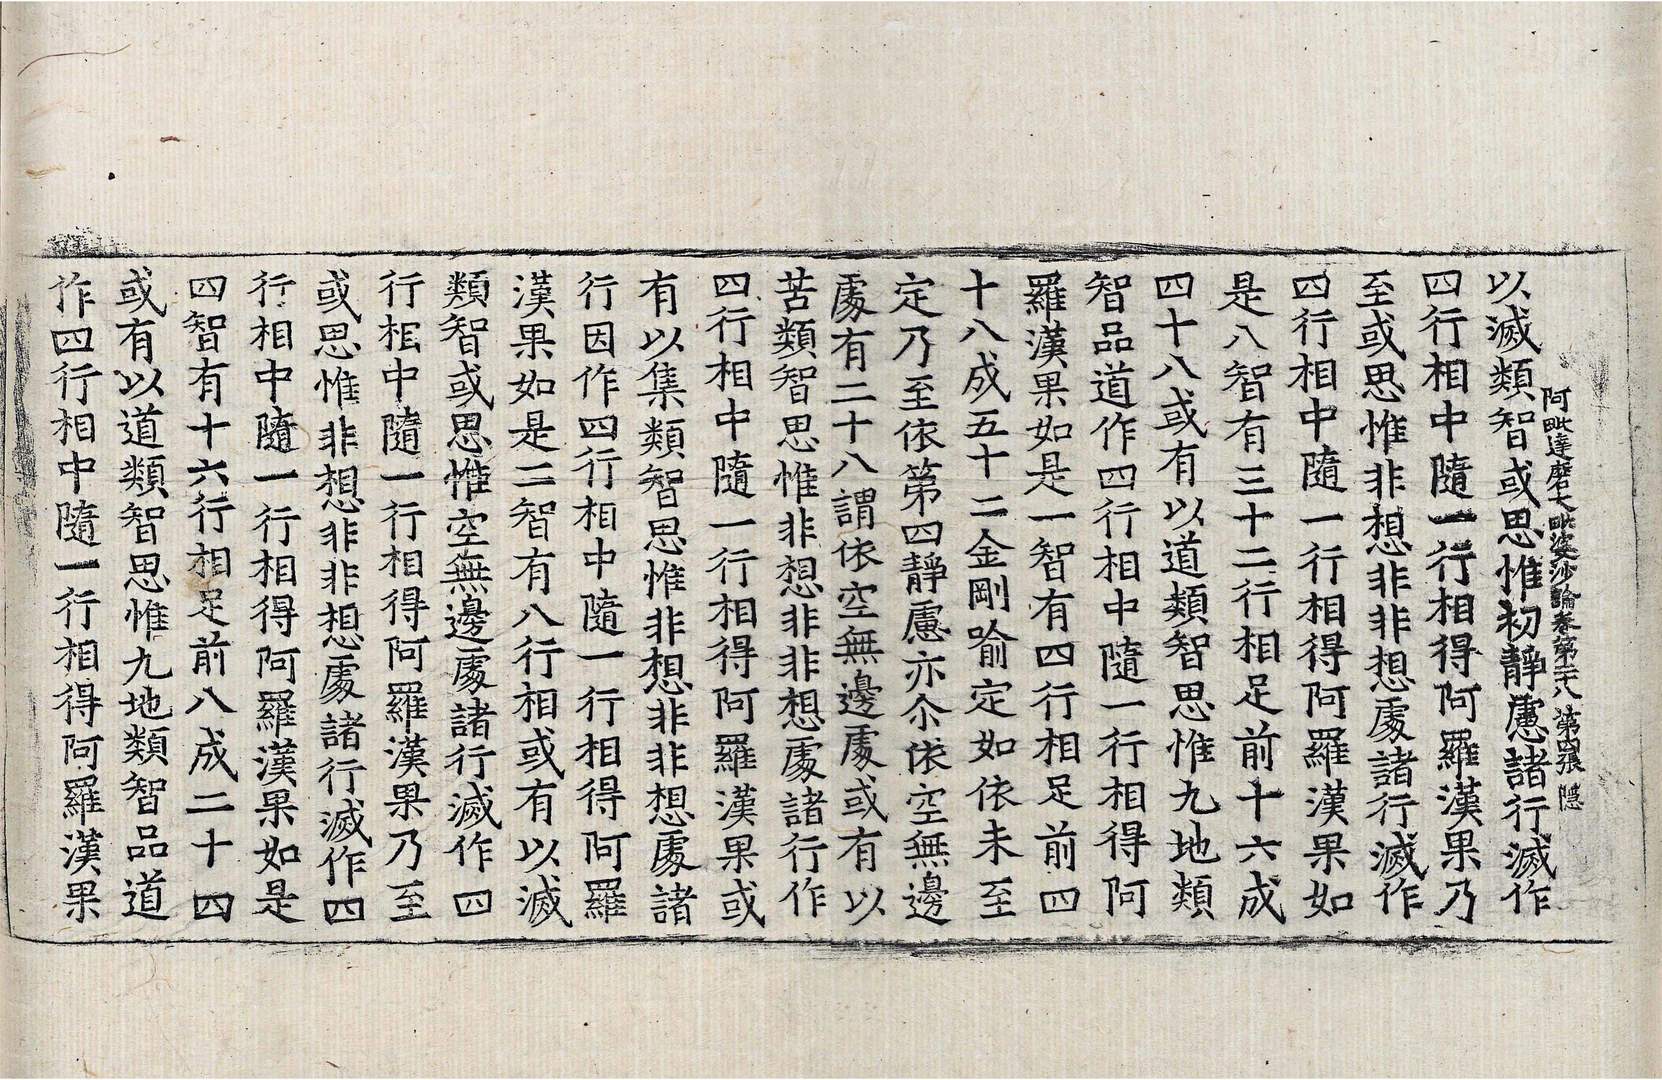 阿毗達磨大毗婆沙論卷第二十八 第四張 隱
以滅類智或思惟初靜慮諸行滅作
四行相中隨一行相得阿羅漢果乃
至或思惟非想非非想處諸行滅作
四行相中隨一行相得阿羅漢果如
是八智有三十二行相足前十六成
四十八或有以道類智思惟九地類
智品道作四行相中隨一行相得阿
羅漢果如是一智有四行相足前四
十八成五十二金剛喻定如依未至
定乃至依第四靜慮亦尒依空無邊
處有二十八謂依空無邊處或有以
苦類智思惟非想非非想處諸行作
四行相中隨一行相得阿羅漢果或
有以集類智思惟非想非非想處諸
行因作四行相中隨一行相得阿羅
漢果如是二智有八行相或有以滅
類智或思惟空無邊處諸行滅作四
行相中隨一行相得阿羅漢果乃至
或思惟非想非非想處諸行滅作四
行相中隨一行相得阿羅漢果如是
四智有十六行相足前八成二十四
或有以道類智思惟九地類智品道
作四行相中隨一行相得阿羅漢果